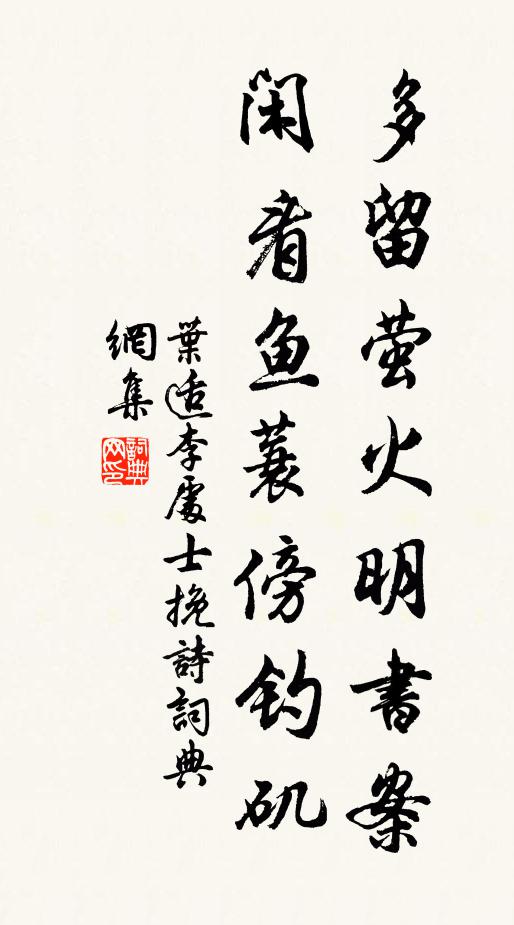 多留萤火明書案
闲看鱼蓑傍钓矶
葉适李處士挽詩詞典
網集
詞典網印